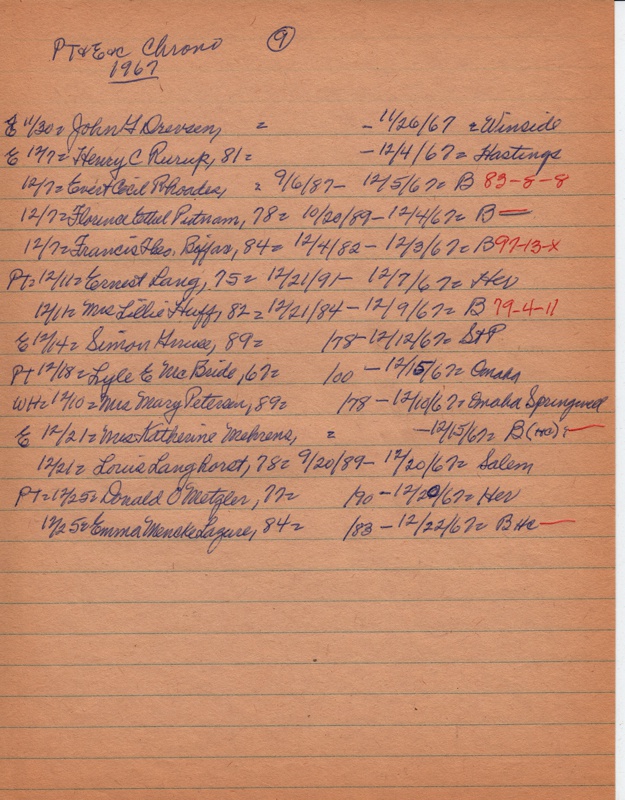 PT & E & C Chrono ⑨
1967
E 11/30 = John G Drevsen, = - 11/26/67 = Winside
E 12/7 = Henry C Rurup, 81 = - 12/4/67 = Hastings
12/7 = Evert Cecil Rhoades, = 9/6/87 - 12/5/67 = B 83-8-8
12/7 = Florence Ethel Putnam, 78 = 10/20/89 - 12/4/67 = B —
12/7 = Francis Geo. Biffar, 84 = 12/4/82 - 12/3/67 = B 97-13-X
PT = 12/11 = Ernest Lang, 75 = 12/21/91 - 12/7/67 = Her
12/11 = Mrs Lillie Huff, 82 = 12/21/84 - 12/9/67 = B 79-4-11
E 12/14 = Simon 89 = /78 - 12/12/67 = St P
PT 12/18 = Lyle E Mc Bride, 67 = /00 - 12/15/67 = Omaha
WH = 12/10 = Mrs Mary Petersen, 89 = /78 - 12/10/67 = Omaha Springwell
E 12/21 = Mrs Katherine Mehrens, = - 12/15/67 = B (HC) —
12/21 = Louis Langhorst, 78 = 9/20/89 - 12/20/67 = Salem
PT = 12/25 = Donald O Metzler, 77 = /90 - 12/20/67 = Her
12/25 = Emma Mencke 84 = /83 - 12/22/67 = B HC —